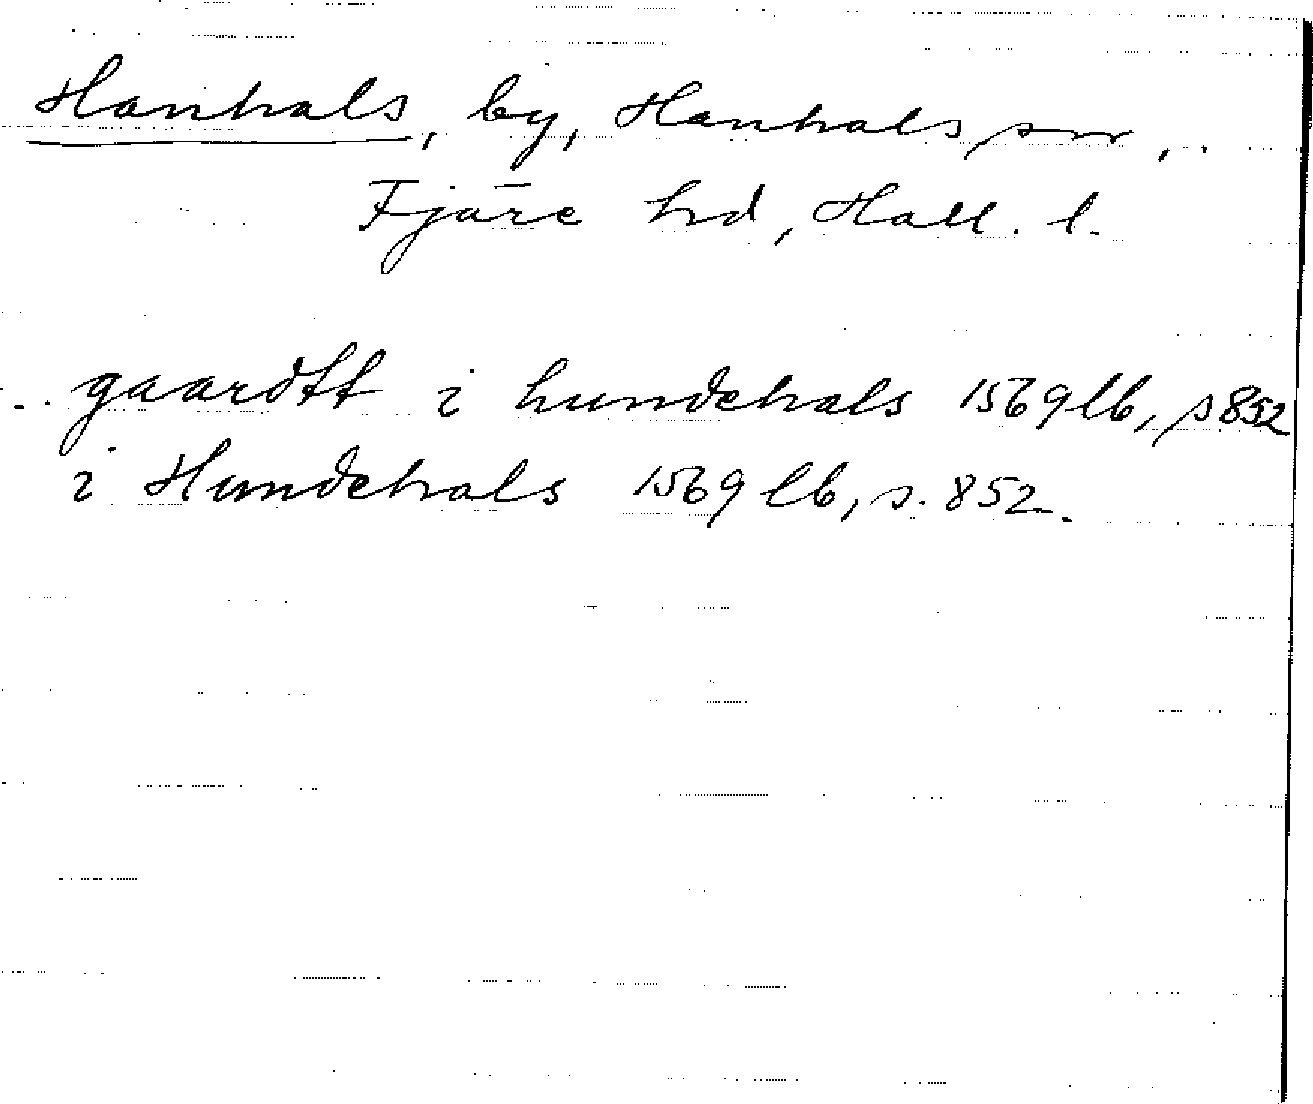 Hanhals, by, Hanhals sn,
Fjäre hd, Hall. l.
gaardtt i hundehals 1569 lb, s 852
i Hundehals 1569 lb, s. 852.